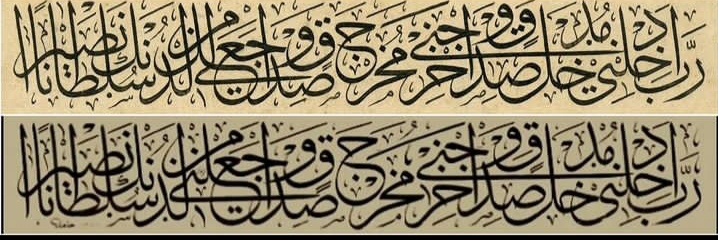 رب أدخلني مدخل صدق وأخرجني مخرج صدق واجعل لي من لدنك سلطانا نصيرا
رب أدخلني مدخل صدق وأخرجني مخرج صدق واجعل لي من لدنك سلطانا نصيرا